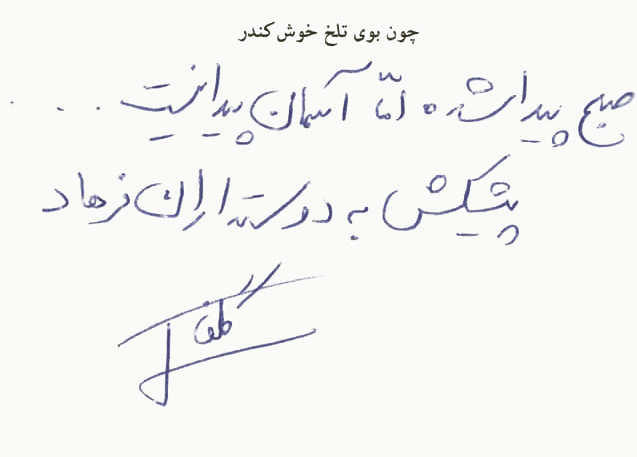 چون بوی تلخ خوش کندر
صبح پیدا شده اما آسمان پیدا نیست ....
پیشکش به دوستداران فرهاد